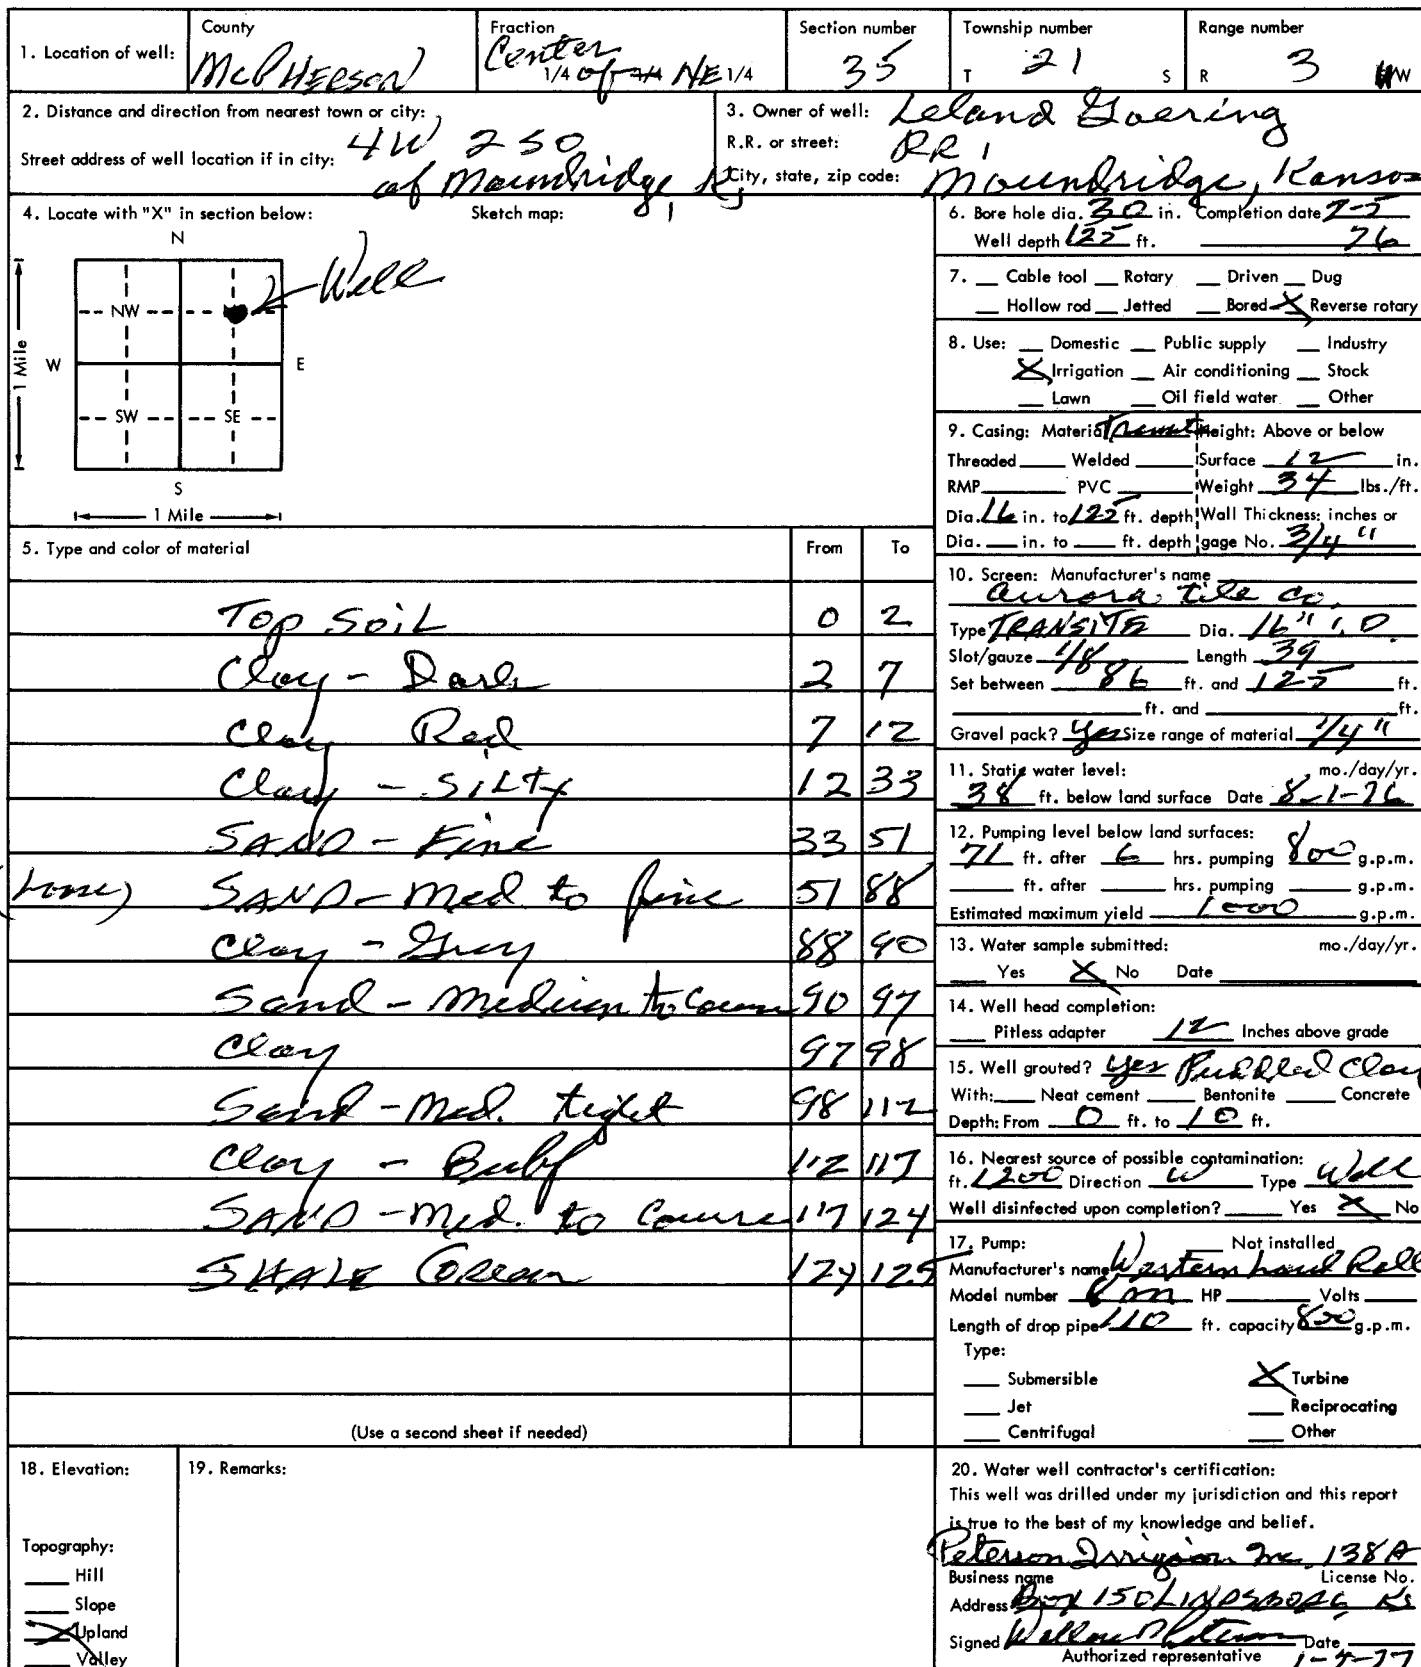 1. Location of well: County McPHERSON Fraction Center 1/4 of NE 1/4 Section number 35 Township number T 21 S Range number R 3 W
2. Distance and direction from nearest town or city: 4W 2 50
Street address of well location if in city: of Moundridge, Ks
3. Owner of well: Leland Goering
R.R. or street: RR 1
City, state, zip code: Moundridge, Kansas
4. Locate with "X" in section below: Sketch map:
N
Well
NW
W E
SW SE
S
1 Mile
1 Mile
5. Type and color of material From To
TOP SOIL 0 2
Clay - Dark 2 7
Clay Red 7 12
Clay - SILTY 12 33
SAND - Fine 33 51
SAND - Med to fine 51 88
Clay - Grey 88 90
Sand - Medium to Course 90 97
Clay 97 98
Sand - Med. tight 98 112
Clay - Buff 112 117
SAND - Med. to Course 117 124
SHALE Green 124 125
(Use a second sheet if needed)
6. Bore hole dia. 30 in. Completion date 7-5
Well depth 125 ft. 76
7. Cable tool Rotary Driven Dug
Hollow rod Jetted Bored X Reverse rotary
8. Use: Domestic Public supply Industry
X Irrigation Air conditioning Stock
Lawn Oil field water Other
9. Casing: Material Height: Above or below
Threaded Welded Surface 12 in.
RMP PVC Weight 34 lbs./ft.
Dia. 16 in. to 125 ft. depth Wall Thickness: inches or
Dia. in. to ft. depth gage No. 3/4"
10. Screen: Manufacturer's name
Aurora tile co.
Type TRANSITE Dia. 16" I.D.
Slot/gauze 1/8 Length 39
Set between 86 ft. and 125 ft.
ft. and ft.
Gravel pack? Yes Size range of material 1/4"
11. Static water level: mo./day/yr.
38 ft. below land surface Date 8-1-76
12. Pumping level below land surfaces:
71 ft. after 6 hrs. pumping 800 g.p.m.
ft. after hrs. pumping g.p.m.
Estimated maximum yield 1000 g.p.m.
13. Water sample submitted: mo./day/yr.
Yes X No Date
14. Well head completion:
Pitless adapter 12 Inches above grade
15. Well grouted? Yes Puddled Clay
With: Neat cement Bentonite Concrete
Depth: From 0 ft. to 10 ft.
16. Nearest source of possible contamination:
ft. 1200 Direction W Type Well
Well disinfected upon completion? Yes X No
17. Pump: Not installed
Manufacturer's name Western Land Roller
Model number HP Volts
Length of drop pipe 110 ft. capacity 800 g.p.m.
Type:
Submersible X Turbine
Jet Reciprocating
Centrifugal Other
18. Elevation:
Topography:
Hill
Slope
X Upland
Valley
19. Remarks:
20. Water well contractor's certification:
This well was drilled under my jurisdiction and this report
is true to the best of my knowledge and belief.
Peterson Irrigation Inc. 138A
Business name License No.
Address Box 150 LINDSBORG Ks
Signed Date
Authorized representative 1-4-77